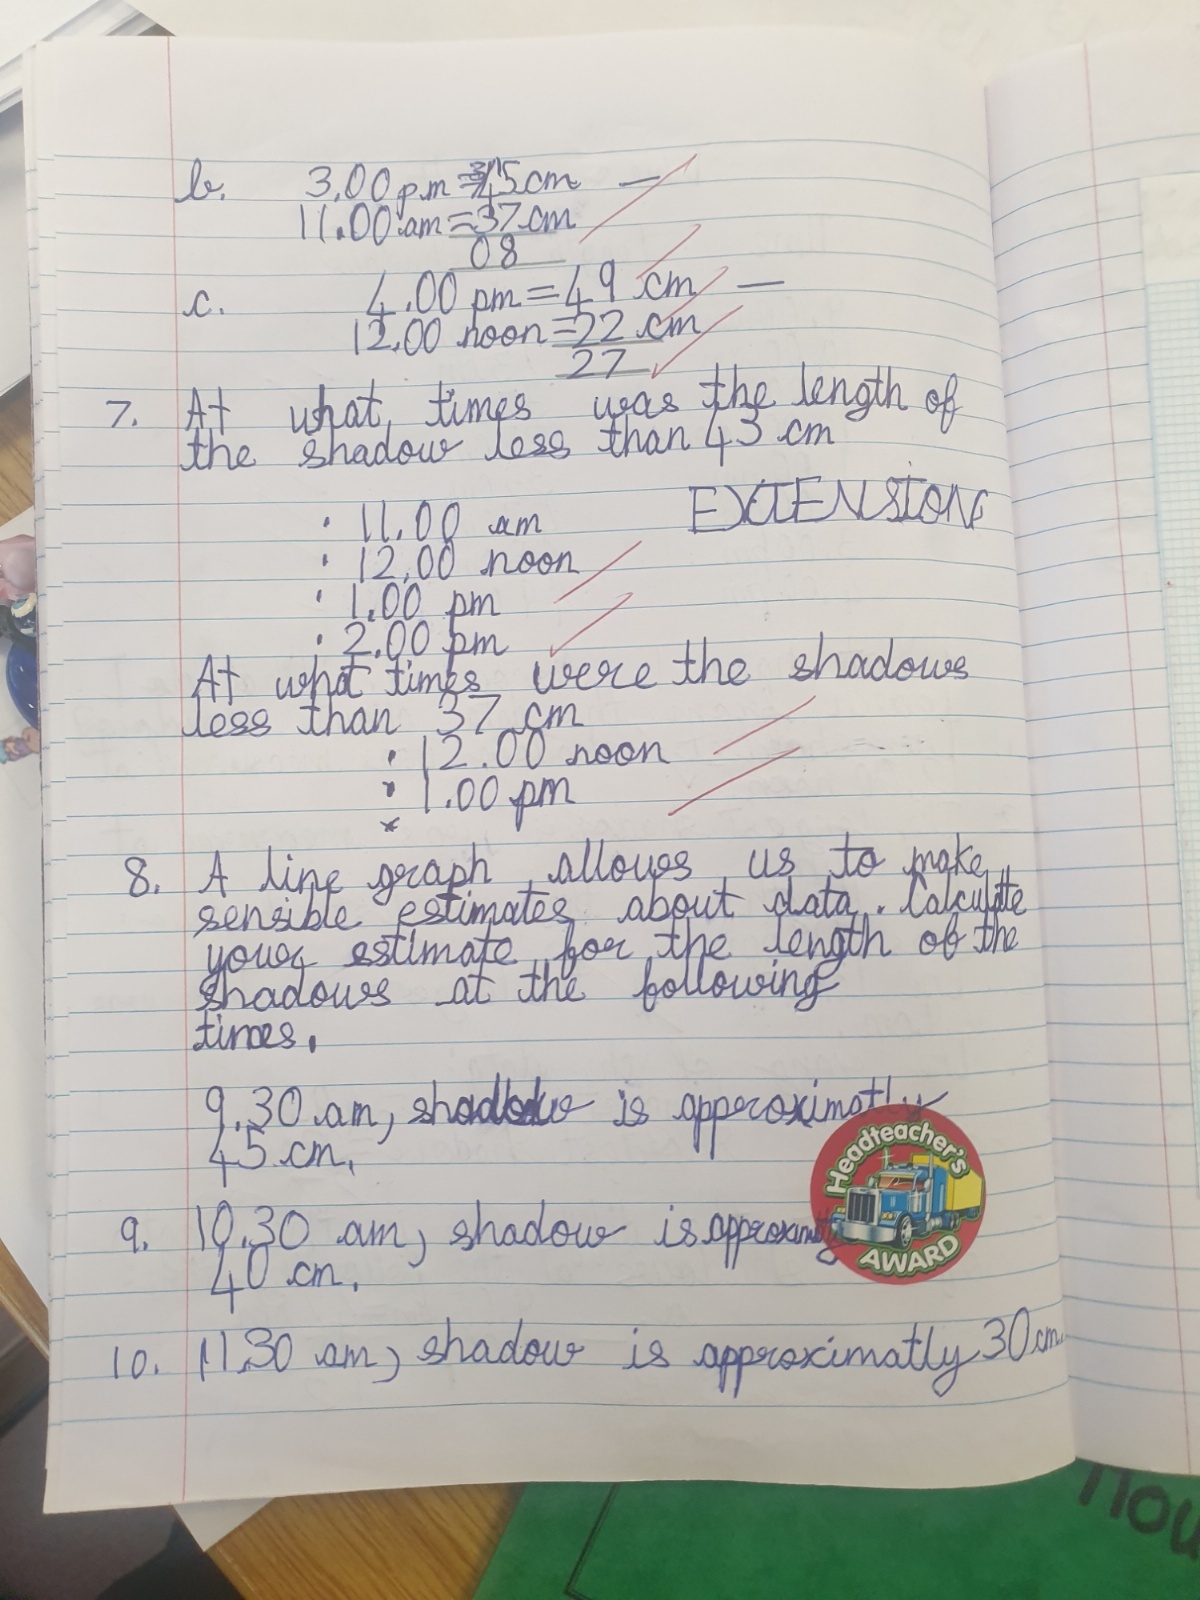 b. 3.00 pm = 45 cm —
11.00 am = 37 cm
08
c. 4.00 pm = 49 cm —
12.00 noon = 22 cm
27
7. At what times was the length of
the shadow less than 43 cm
EXTENSION
• 11.00 am
• 12.00 noon
• 1.00 pm
• 2.00 pm
At what times were the shadows
less than 37 cm
• 12.00 noon
• 1.00 pm
8. A line graph allows us to make
sensible estimates about data. Calculate
your estimate for the length of the
shadows at the following
times.
9.30 am, shadow is approximatly
45 cm.
Headteacher's
AWARD
9. 10.30 am, shadow is approximatly
40 cm.
10. 11.30 am, shadow is approximatly 30 cm.